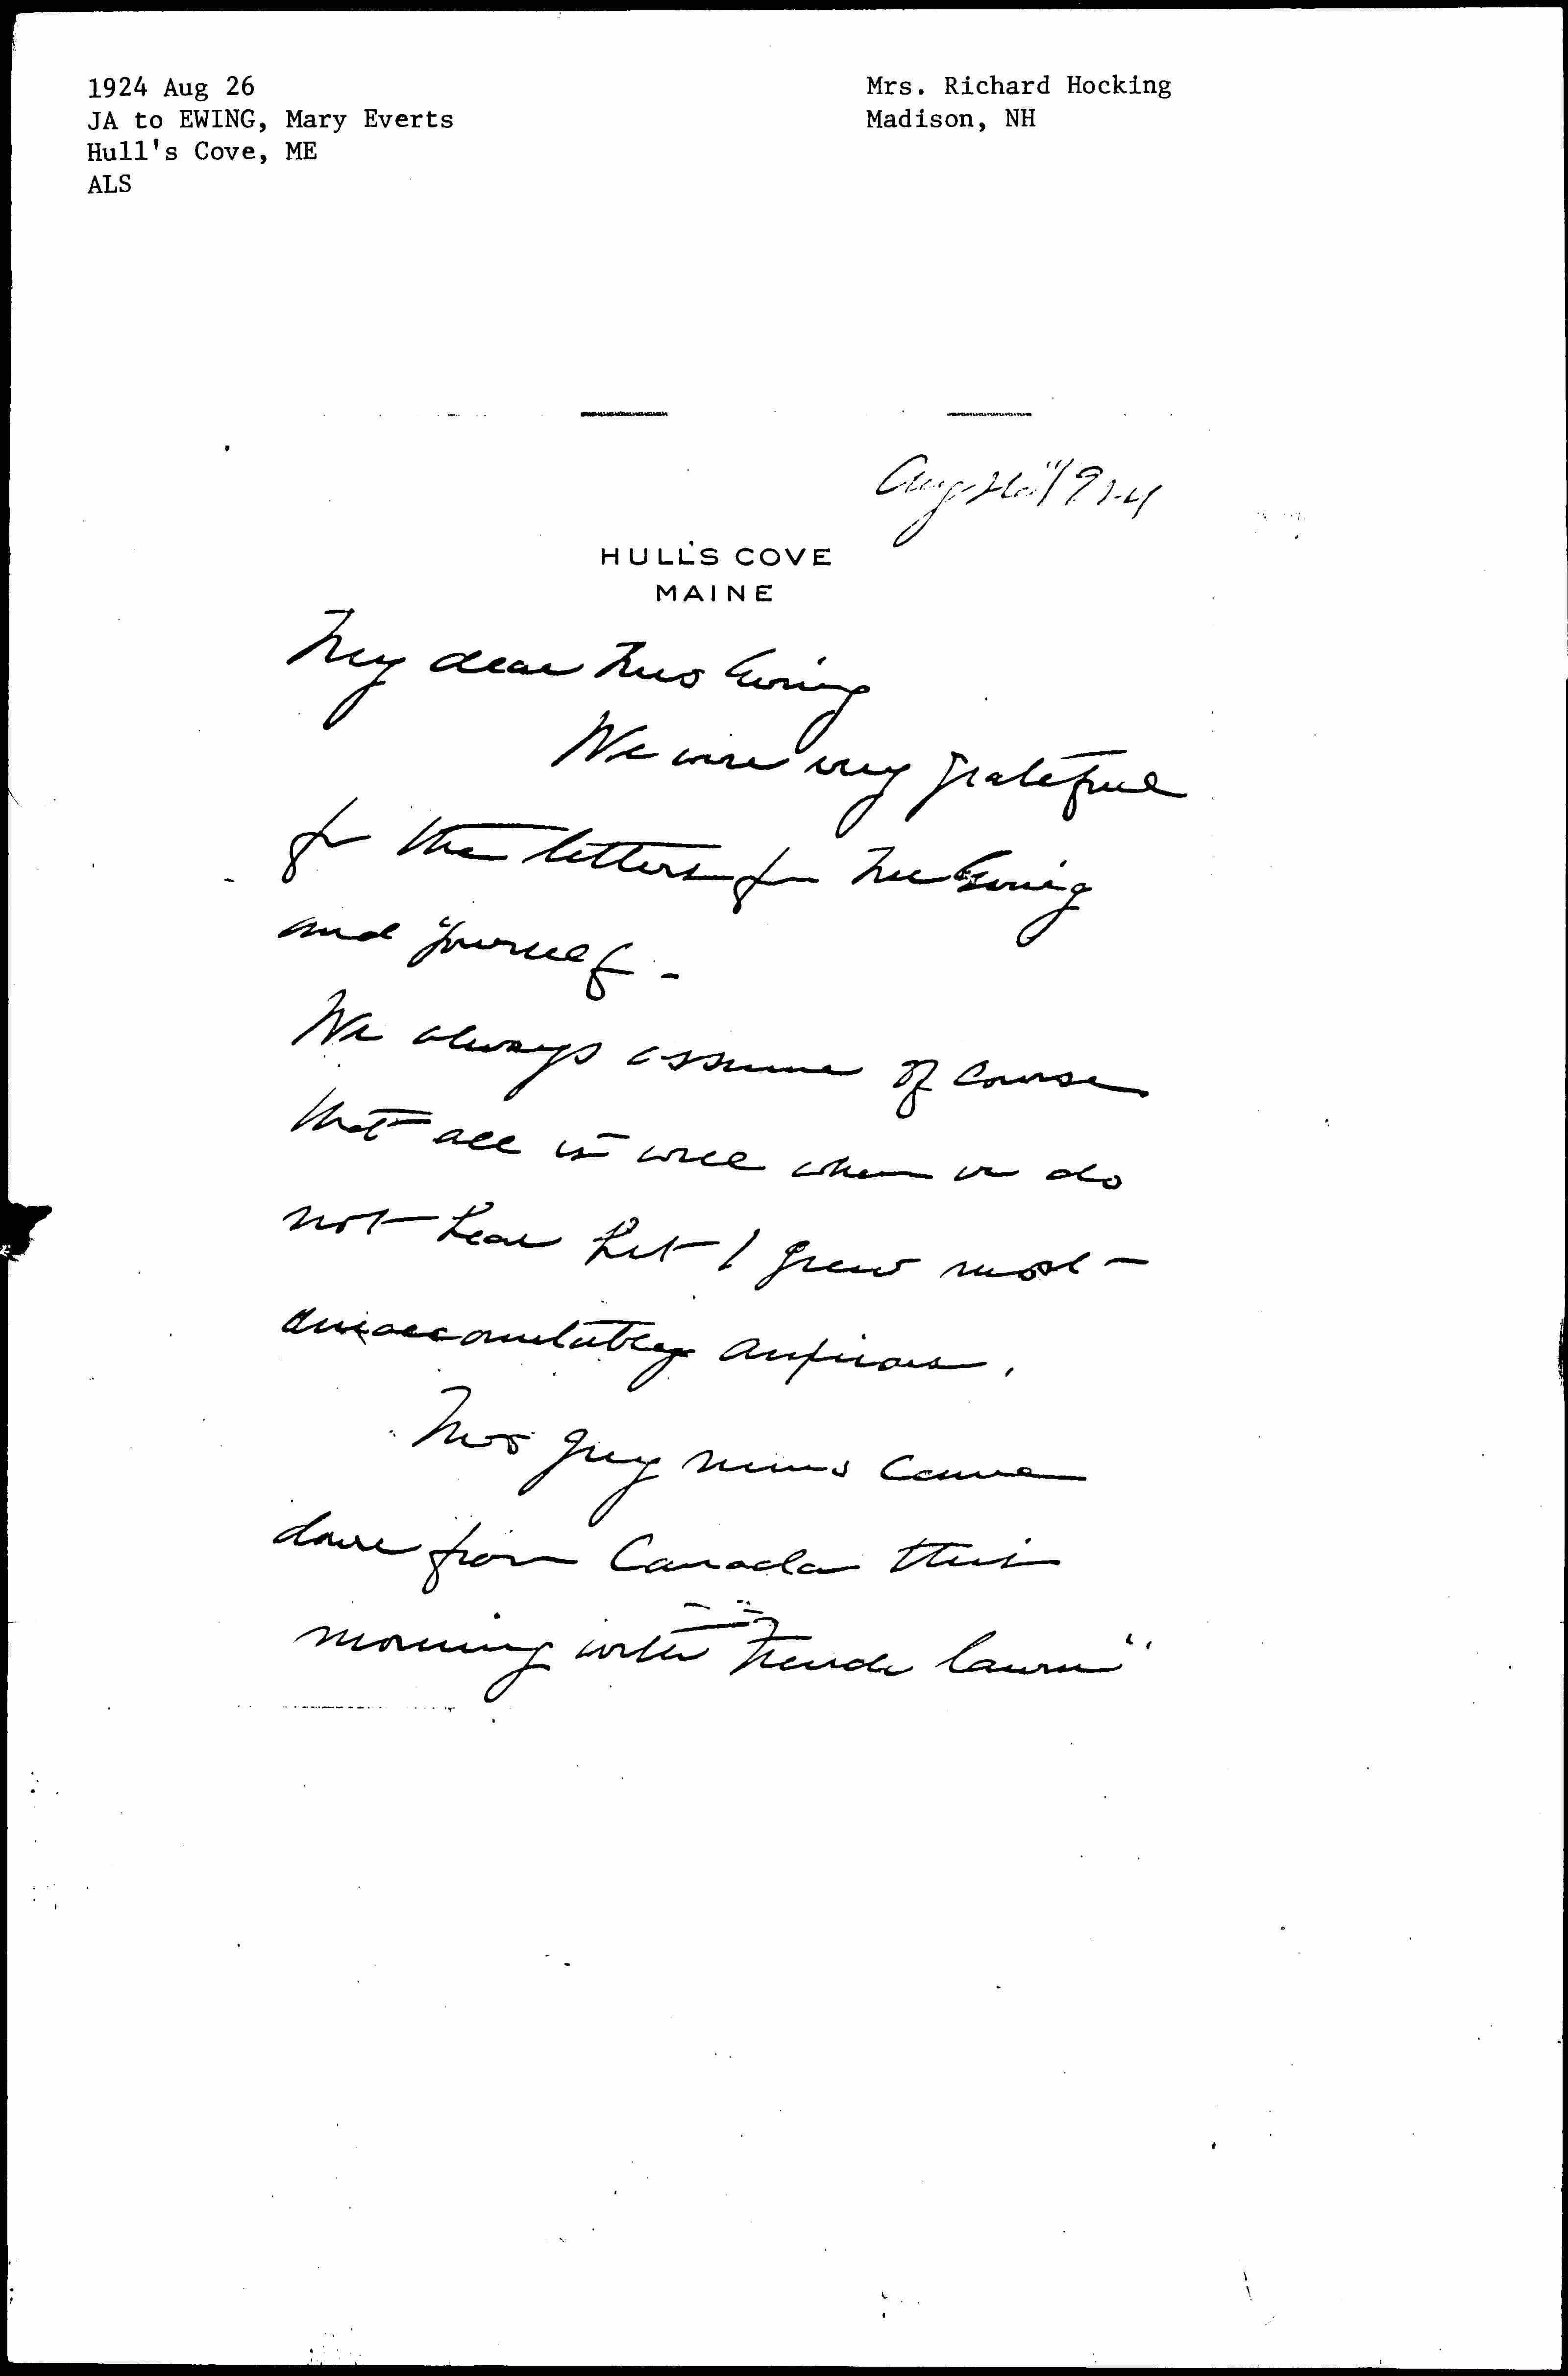 1924 Aug 26
JA to EWING, Mary Everts
Hull's Cove, ME
ALS
Mrs. Richard Hocking
Madison, NH
Aug 26" 1924
HULL'S COVE
MAINE
My dear Mrs Ewing
We were very grateful
for the letters from Mr Ewing
and yourself -
We always assume of course
that all is well when we do
not hear but I grew most
unaccountably anxious.
Mrs came
down from Canada this
morning with